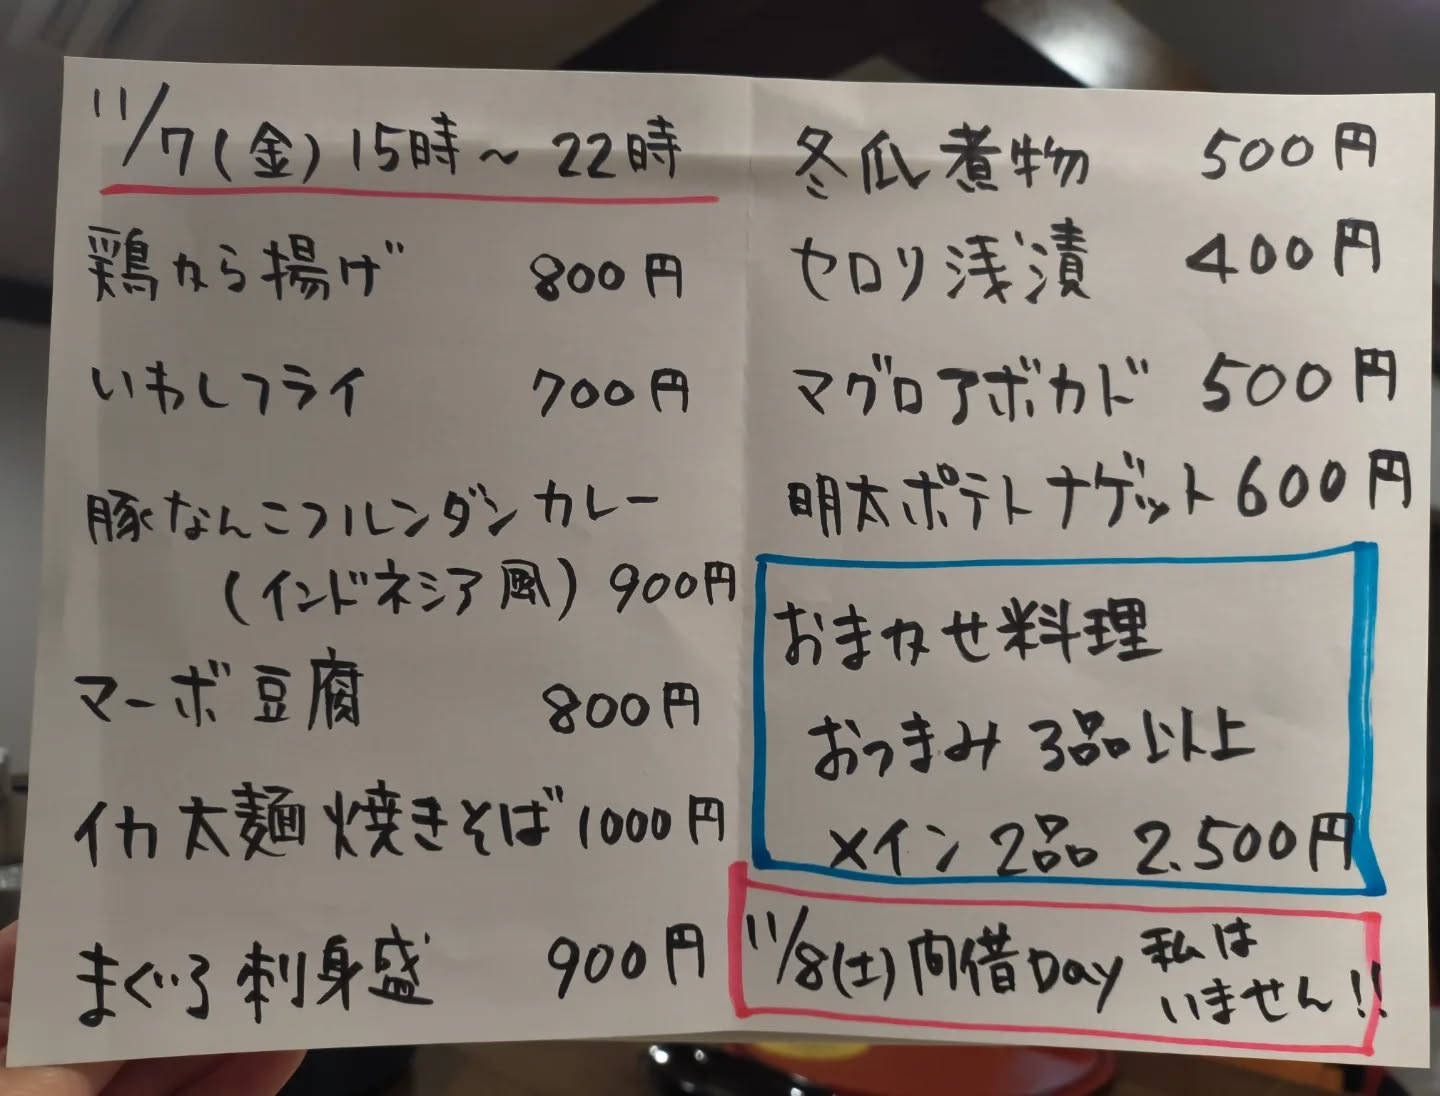 11/7(金)15時～22時
鶏から揚げ 800円
いわしフライ 700円
豚なんこつルンダンカレー
(インドネシア風) 900円
マーボ豆腐 800円
イカ太麺焼きそば 1000円
まぐろ刺身盛 900円
冬瓜煮物 500円
セロリ浅漬 400円
マグロアボカド 500円
明太ポテトナゲット 600円
おまかせ料理
おつまみ 3品以上
メイン 2品 2.500円
11/8(土)間借Day 私は
いません!!